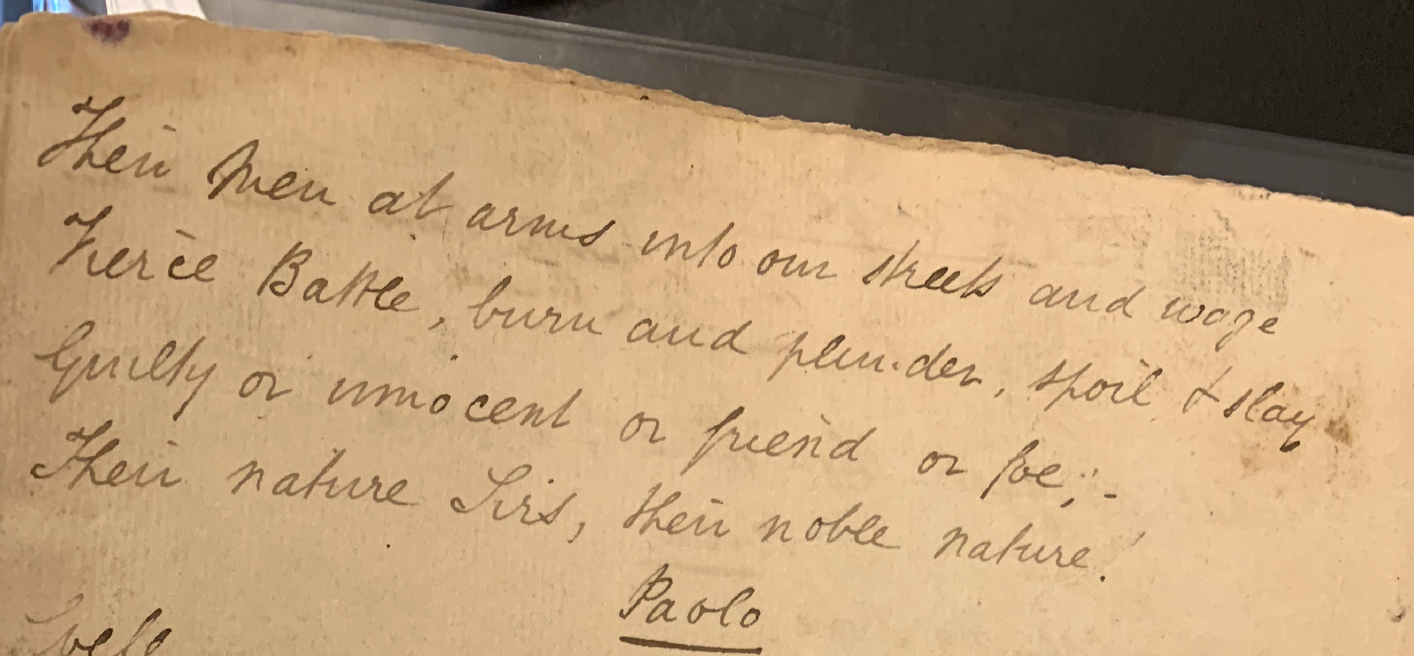 Their Men at arms into our streets and wage
Fierce Battle, burn and plunder, spoil & slay
Guilty or innocent or friend or foe;-
Their nature Sirs, their noble nature!
Paolo